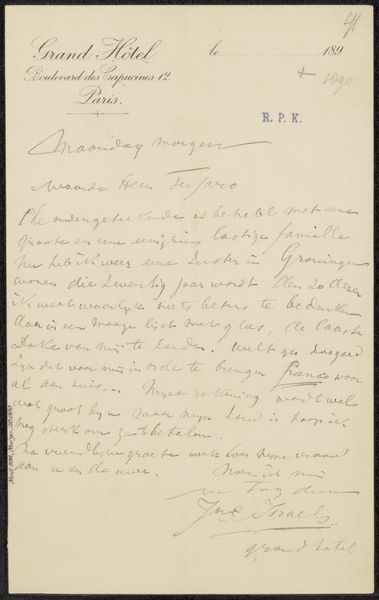 41
Grand Hôtel
Boulevard des Capucines, 12
Paris.
le 189
+ 1890
R. P. K.
Maandag morgen
Waarde Heer Tersaro
De ondergeteekende is behebt met eene
groote en eene eenigzins lastige familie
Nu heb ik weer eene zuster in Groningen
wonen die zeventig jaar wordt den 20 dezer
ik weet waarlijk niets beters te bedenken
dan in een lijst met glas, de laatste
van mij te zenden. wilt ge
zijn dit voor mij in orde te brengen franco voor
al aan huis... Mijne rekening wordt wel
wat groot bij maar mijn hand is hoop ik
nog sterk om te betalen.
Na vriendelijke groete ook van mijne vrouw
aan u en de uwe.
Noem ik mij
uw
Joz Israels
grand hotel